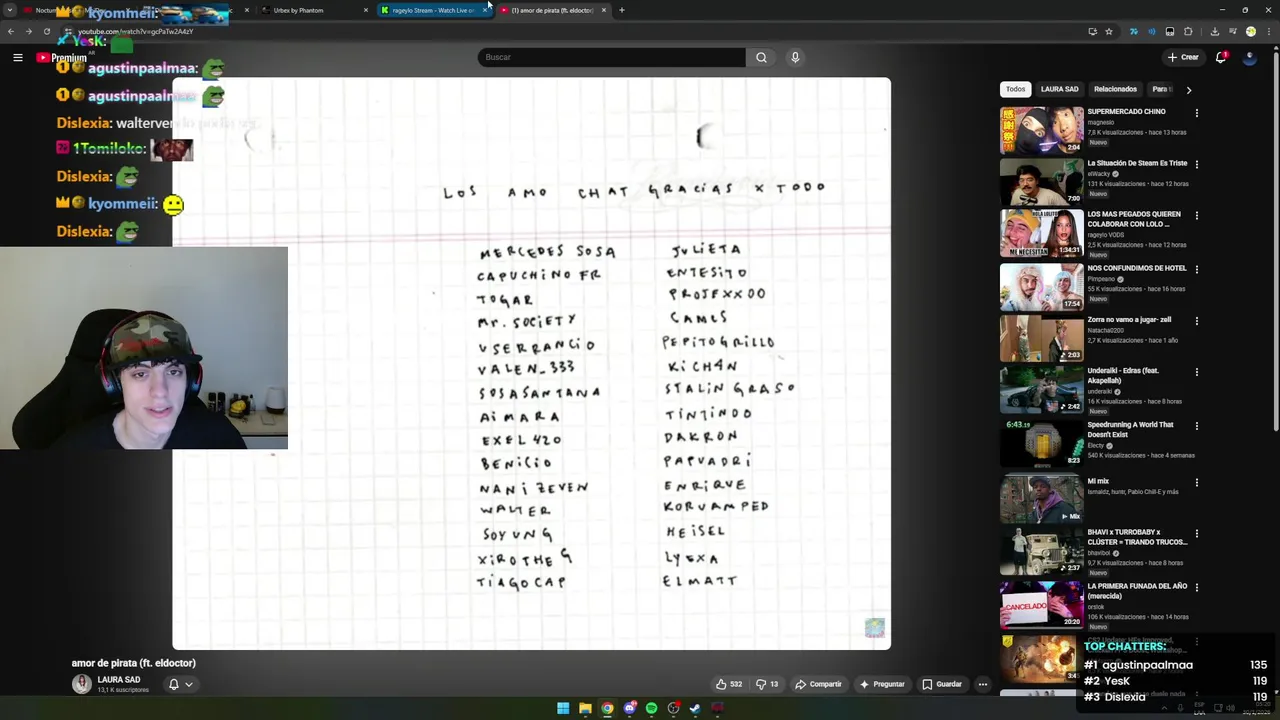 Urbex by Phantom
rageylo Stream - Watch Live on
(1) amor de pirata (ft. eldoctor)
youtube.com/watch?v=gcPaTw2A4zY
Premium
AR
Buscar
Crear
kyommeii:
YesK:
agustinpaalmaa:
agustinpaalmaa:
Dislexia:
1Tomiloko:
Dislexia:
kyommeii:
Dislexia:
LOS AMO CHAT GRACIAS X TODO
MERCEDES SOSA
CAPUCHINO FR
TOGAR
Mr. SOCIETY
USERRANCIO
VALEN_333
SOSASANTANA
AiMARA
EXEL420
BENICIO
NANIZEVEN
WALTER
SOYUNG
XIROTHEG
TIAGOCAP
JULIETA
ENTESITO
PROJEXX00
CAMES
PEPITOGRILLO
KiCH4N
STALINGRASO
TINTINDO
DAKRON
PUPUADRI
ENRIQUE
KORVAMPED
HEISEL
LYEXA
ELMATT
amor de pirata (ft. eldoctor)
LAURA SAD
13,1 K suscriptores
532
13
Compartir
Preguntar
Guardar
Todos
LAURA SAD
Relacionados
SUPERMERCADO CHINO
magnesio
7,8 K visualizaciones • hace 13 horas
Nuevo
2:04
La Situación De Steam Es Triste
elWacky
131 K visualizaciones • hace 12 horas
Nuevo
7:00
LOS MAS PEGADOS QUIEREN
COLABORAR CON LOLO ...
rageylo VODS
2,5 K visualizaciones • hace 12 horas
Nuevo
1:34:31
ME NECESITAN
NOS CONFUNDIMOS DE HOTEL
Pimpeano
55 K visualizaciones • hace 16 horas
Nuevo
17:54
Zorra no vamo a jugar- zell
Natacha0200
2,7 K visualizaciones • hace 1 año
2:03
Underaiki - Edras (feat.
Akapellah)
underaiki
16 K visualizaciones • hace 8 horas
Nuevo
2:42
6:43.19
Speedrunning A World That
Doesn't Exist
Electy
540 K visualizaciones • hace 4 semanas
8:23
Mi mix
Ismaldz, huntr, Pablo Chill-E y más
Mix
BHAVI x TURROBABY x
CLÚSTER = TIRANDO TRUCOS...
bhaviboi
9,7 K visualizaciones • hace 8 horas
Nuevo
2:37
LA PRIMERA FUNADA DEL AÑO
(merecida)
orslok
106 K visualizaciones • hace 14 horas
Nuevo
CANCELADO
20:20
TOP CHATTERS:
#1 agustinpaalmaa 135
#2 YesK 119
#3 Dislexia 119
ESP